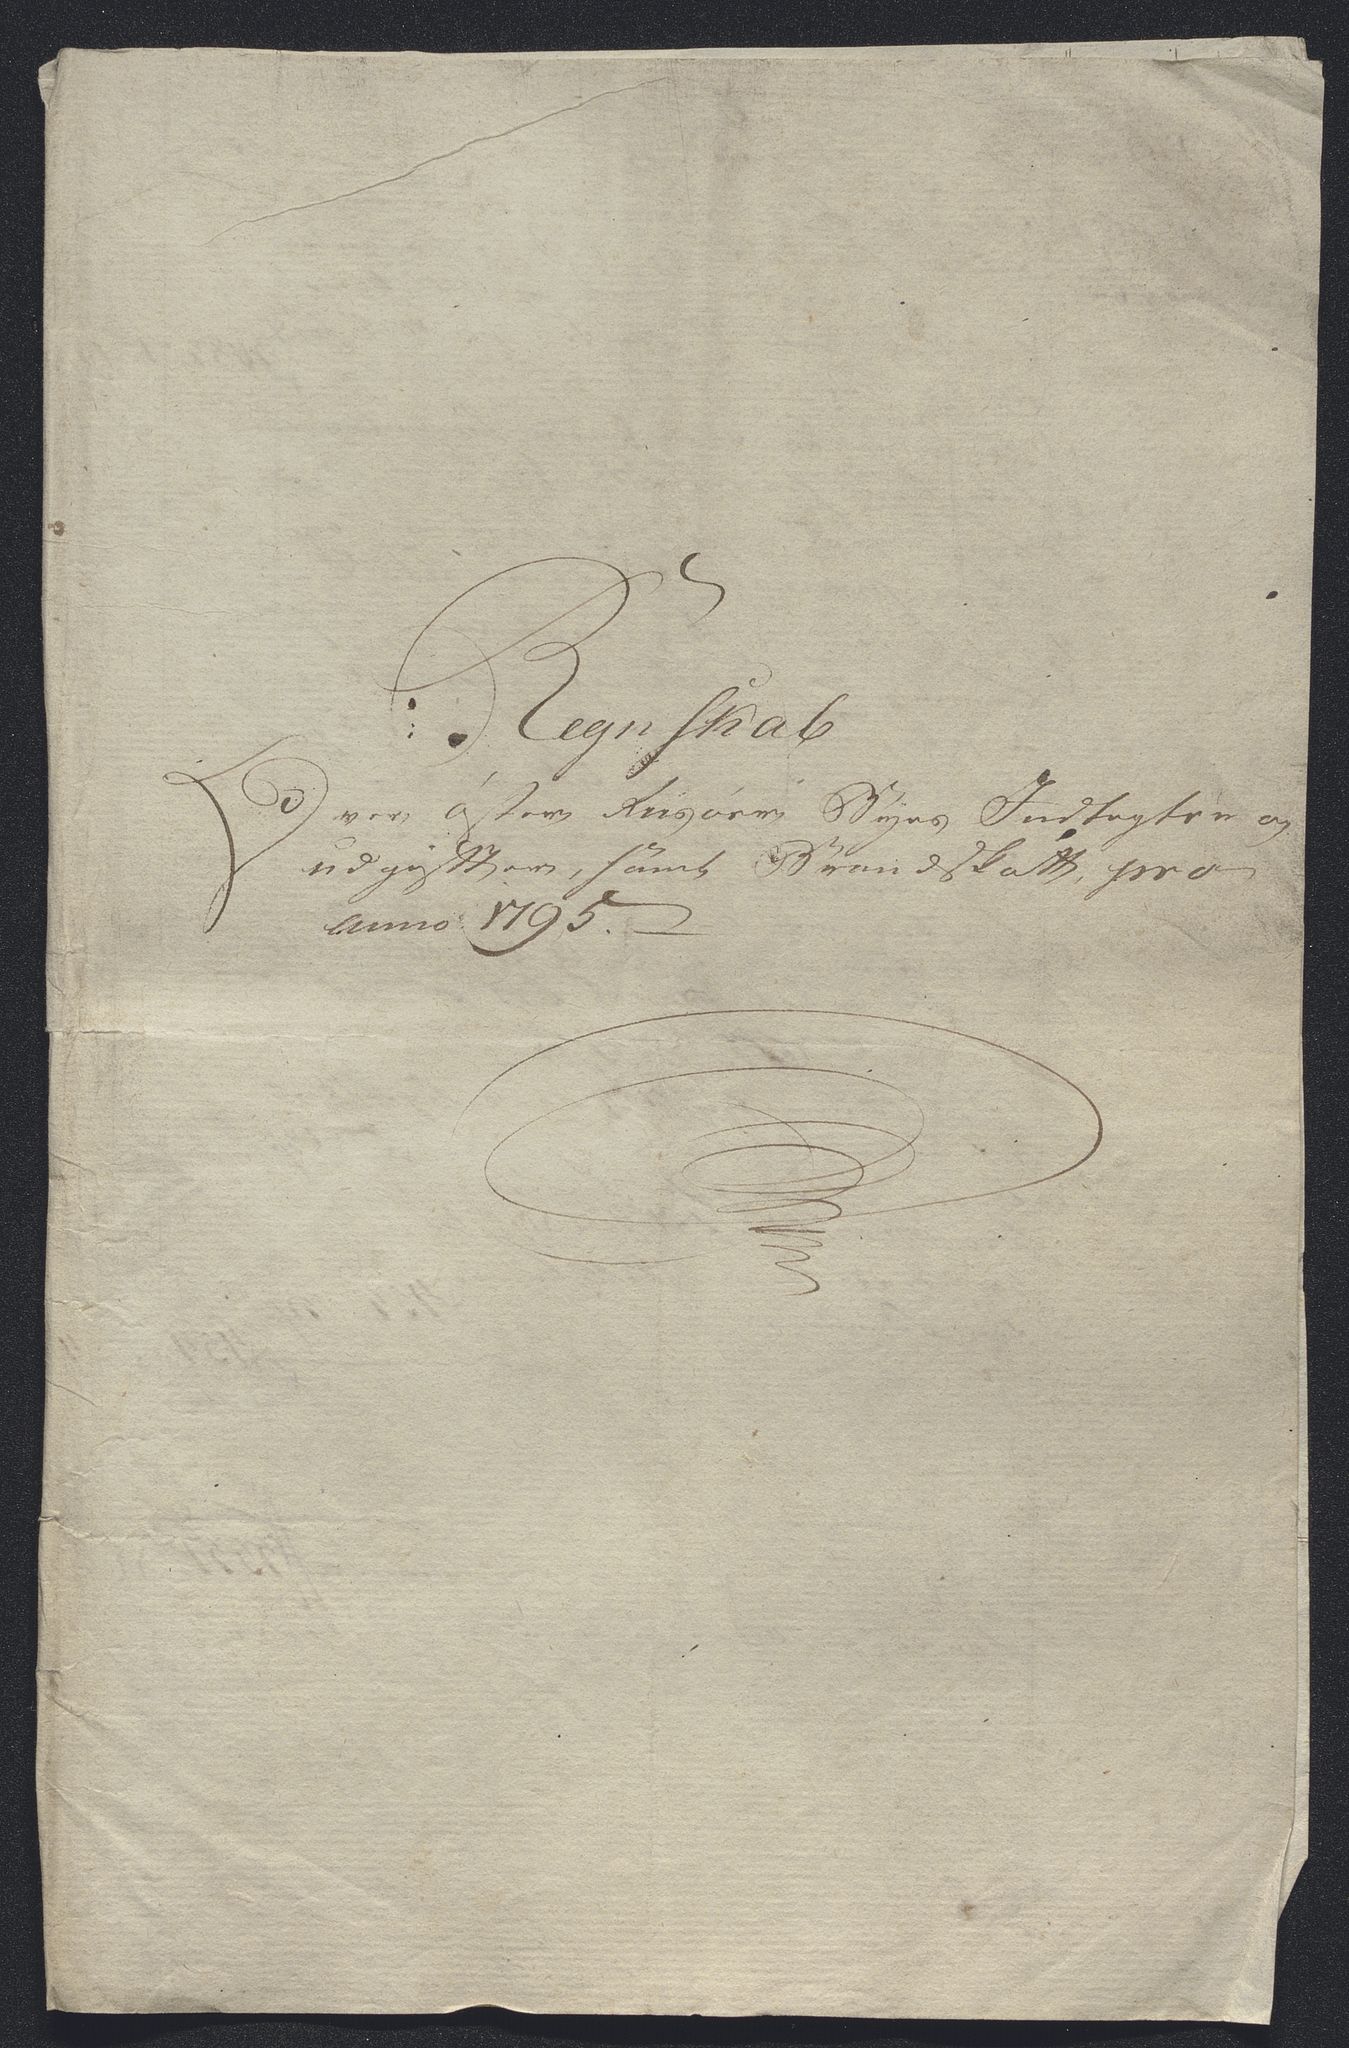 Regnskab
Over öster Riisöers Byes Indtegter og
udgifter, samt Brandskatt, pro
anno 1795.